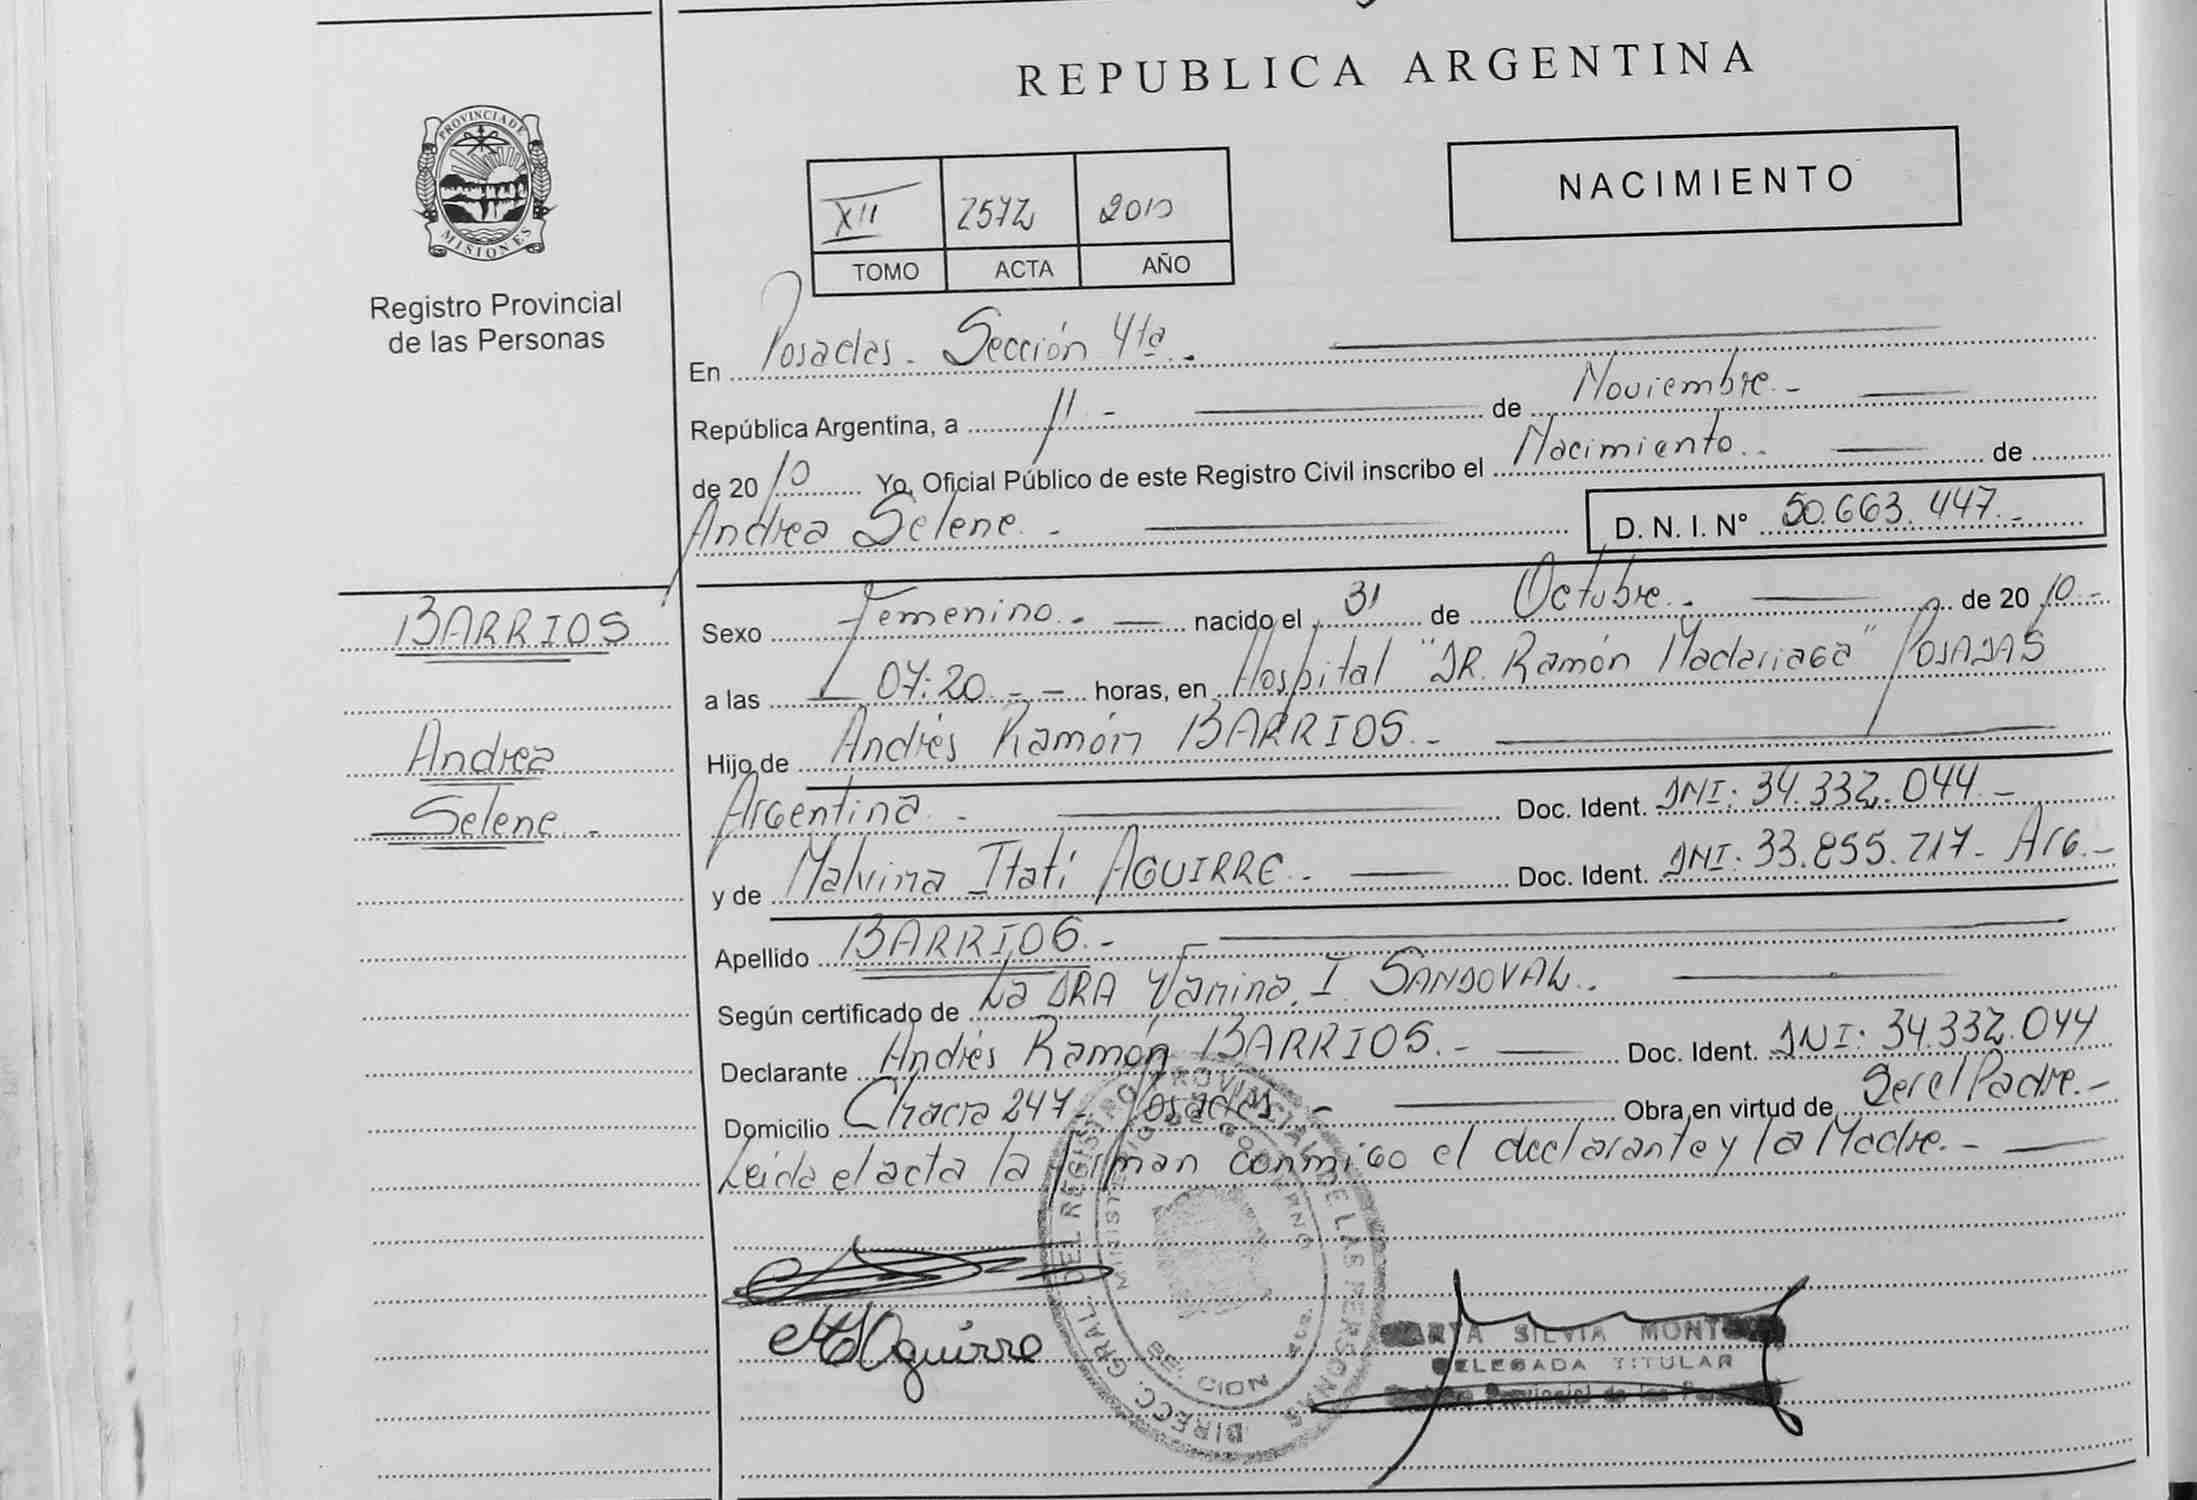 REPUBLICA ARGENTINA
PROVINCIA DE MISIONES
Registro Provincial
de las Personas
NACIMIENTO
XII 2572 2010
TOMO ACTA AÑO
En Posadas - Sección 4ta.-
República Argentina, a 11.- de Noviembre.-
de 2010 Yo, Oficial Público de este Registro Civil inscribo el Nacimiento.. de
Andrea Selene.- D. N. I. N° 50.663.447.-
BARRIOS
Andrea
Selene.-
Sexo Femenino.- nacido el 31 de Octubre.- de 2010.-
a las 07:20.-- horas, en Hospital "DR. Ramón Madariaga" POSADAS
Hijo de Andrés Ramón BARRIOS.-
Argentina.- Doc. Ident. DNI: 34.332.044.-
y de Malvina Itatí AGUIRRE.- Doc. Ident. DNI: 33.855.217- Arg.-
Apellido BARRIOS.-
Según certificado de La DRA Vanina, I SANDOVAL.
Declarante Andrés Ramón BARRIOS.- Doc. Ident. DNI: 34.332.044
Domicilio Chacra 247- Posadas.- Obra en virtud de Ser el Padre.-
Leida el acta la firman conmigo el declarante y la Madre.-
DIRECC. GRAL. DEL REGISTRO PROVINCIAL DE LAS PERSONAS
MINISTERIO DE GOBIERNO
Aguirre
SILVIA
DELEGADA TITULAR
Provincial de las